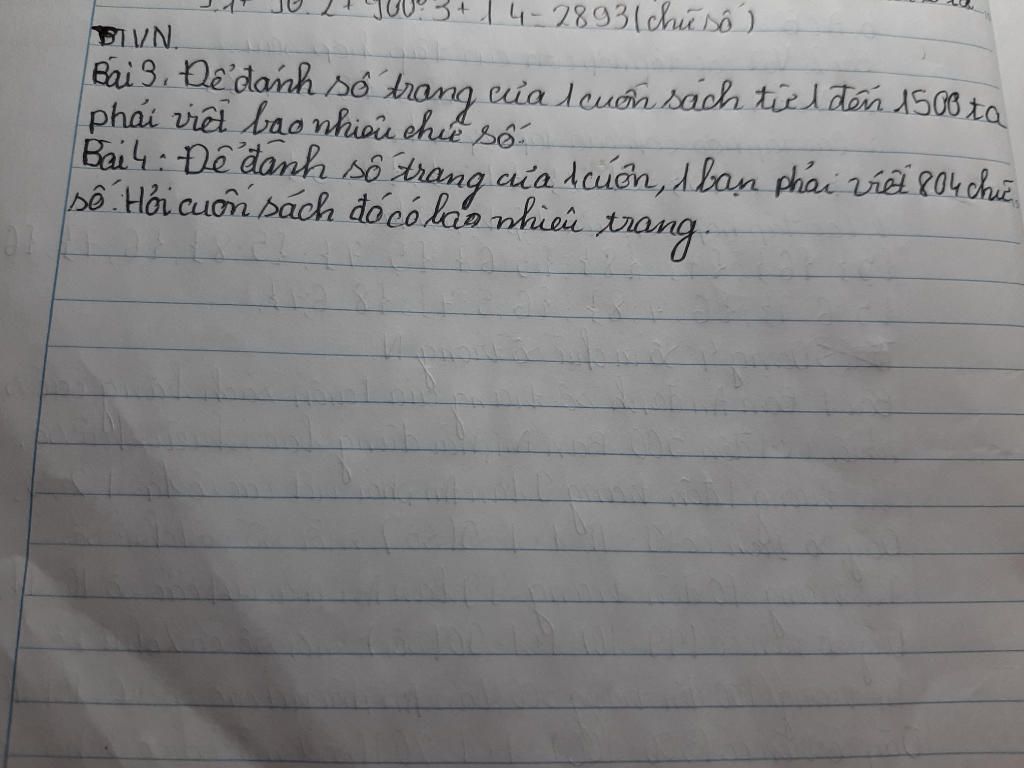 9.1+ 90.2+ 900.3+ 1.4= 2893(chữ số)
BTVN.
Bài 3. Để đánh số trang của 1 cuốn sách từ 1 đến 1500 ta
phải viết bao nhiêu chữ số.
Bài 4: Để đánh số trang của 1 cuốn, 1 bạn phải viết 804 chữ
số. Hỏi cuốn sách đó có bao nhiêu trang.